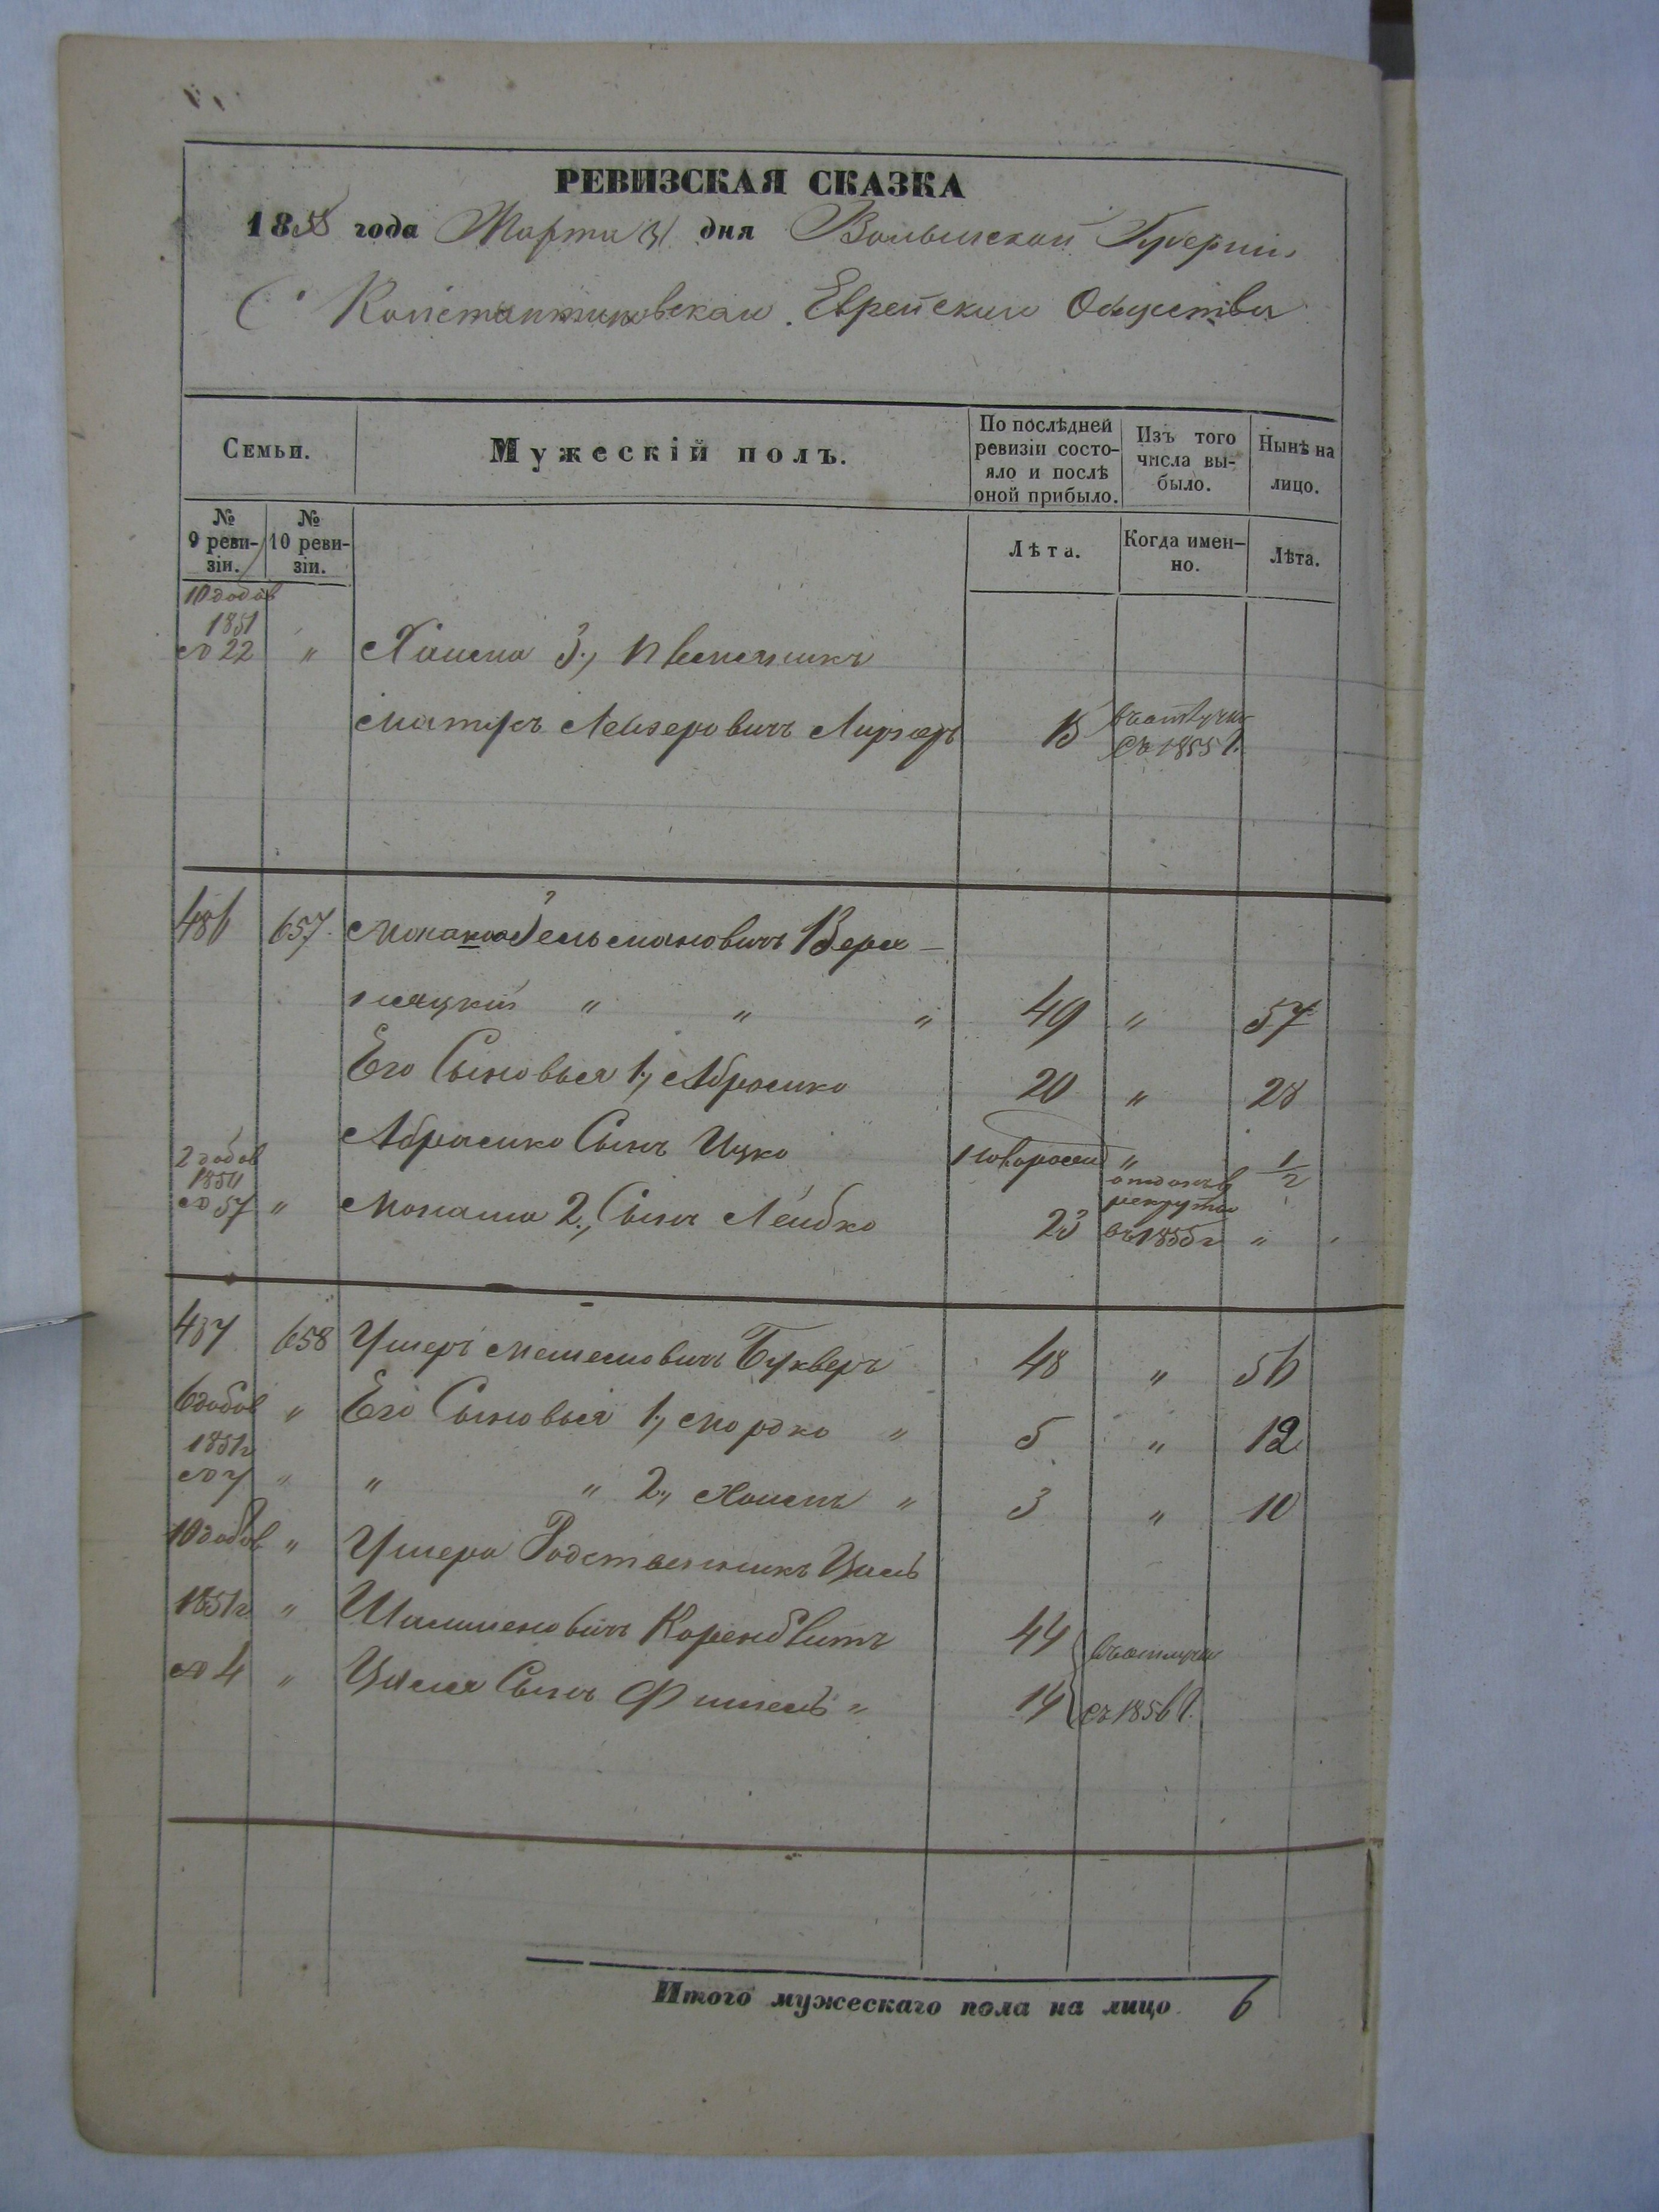 РЕВИЗСКАЯ СКАЗКА
1858 года Марта 31 дня Волынской Губерніи
С Константиновскаго Еврейскаго Общества
Семьи.
Мужескій полъ.
По послѣдней ревизіи состо-
яло и послѣ
оной прибыло.
Изъ того
числа вы-
было.
Нынѣ на
лицо.
№
9 реви-
зіи.
№
10 реви-
зіи.
Лѣта.
Когда имен-
но.
Лѣта.
10 додов
1851
№ 22 " Хаима 3., Племянникъ
Лейзеровичъ 15 въ отлучкѣ
съ 1855 г.
486 657. Зельмановичъ
" " " 49 " 57
Его Сыновья 1., Абрамко 20 " 28
Абрамко Сынъ Ицко новорожд " 1/2
2 добов
1851
№ 57 " Монаша 2., Сынъ Лейбко 23 отданъ в
рекруты
въ 1855 г "
487 658 Ушеръ Букверъ 48 " 56
6 добов " Его Сыновья 1., Мордко " 5 " 12
1851 г
№ 7 " " " 2., Хаимъ " 3 " 10
10 добов " Ушера Родственникъ
1851 г " 44 въ отлучке
№ 4 " Сынъ Фишель " 14 съ 1856 г.
Итого мужескаго пола на лицо 6